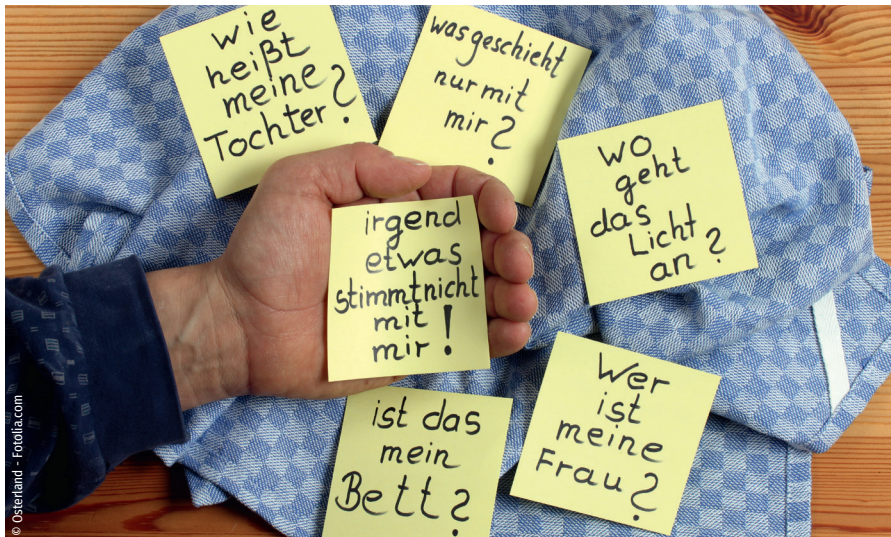 wie
heißt
meine
Tochter?
was geschieht
nur mit
mir?
wo
geht
das
Licht
an?
irgend
etwas
stimmt nicht
mit
mir!
ist das
mein
Bett?
Wer
ist
meine
Frau?
© Osterland - Fotolia.com